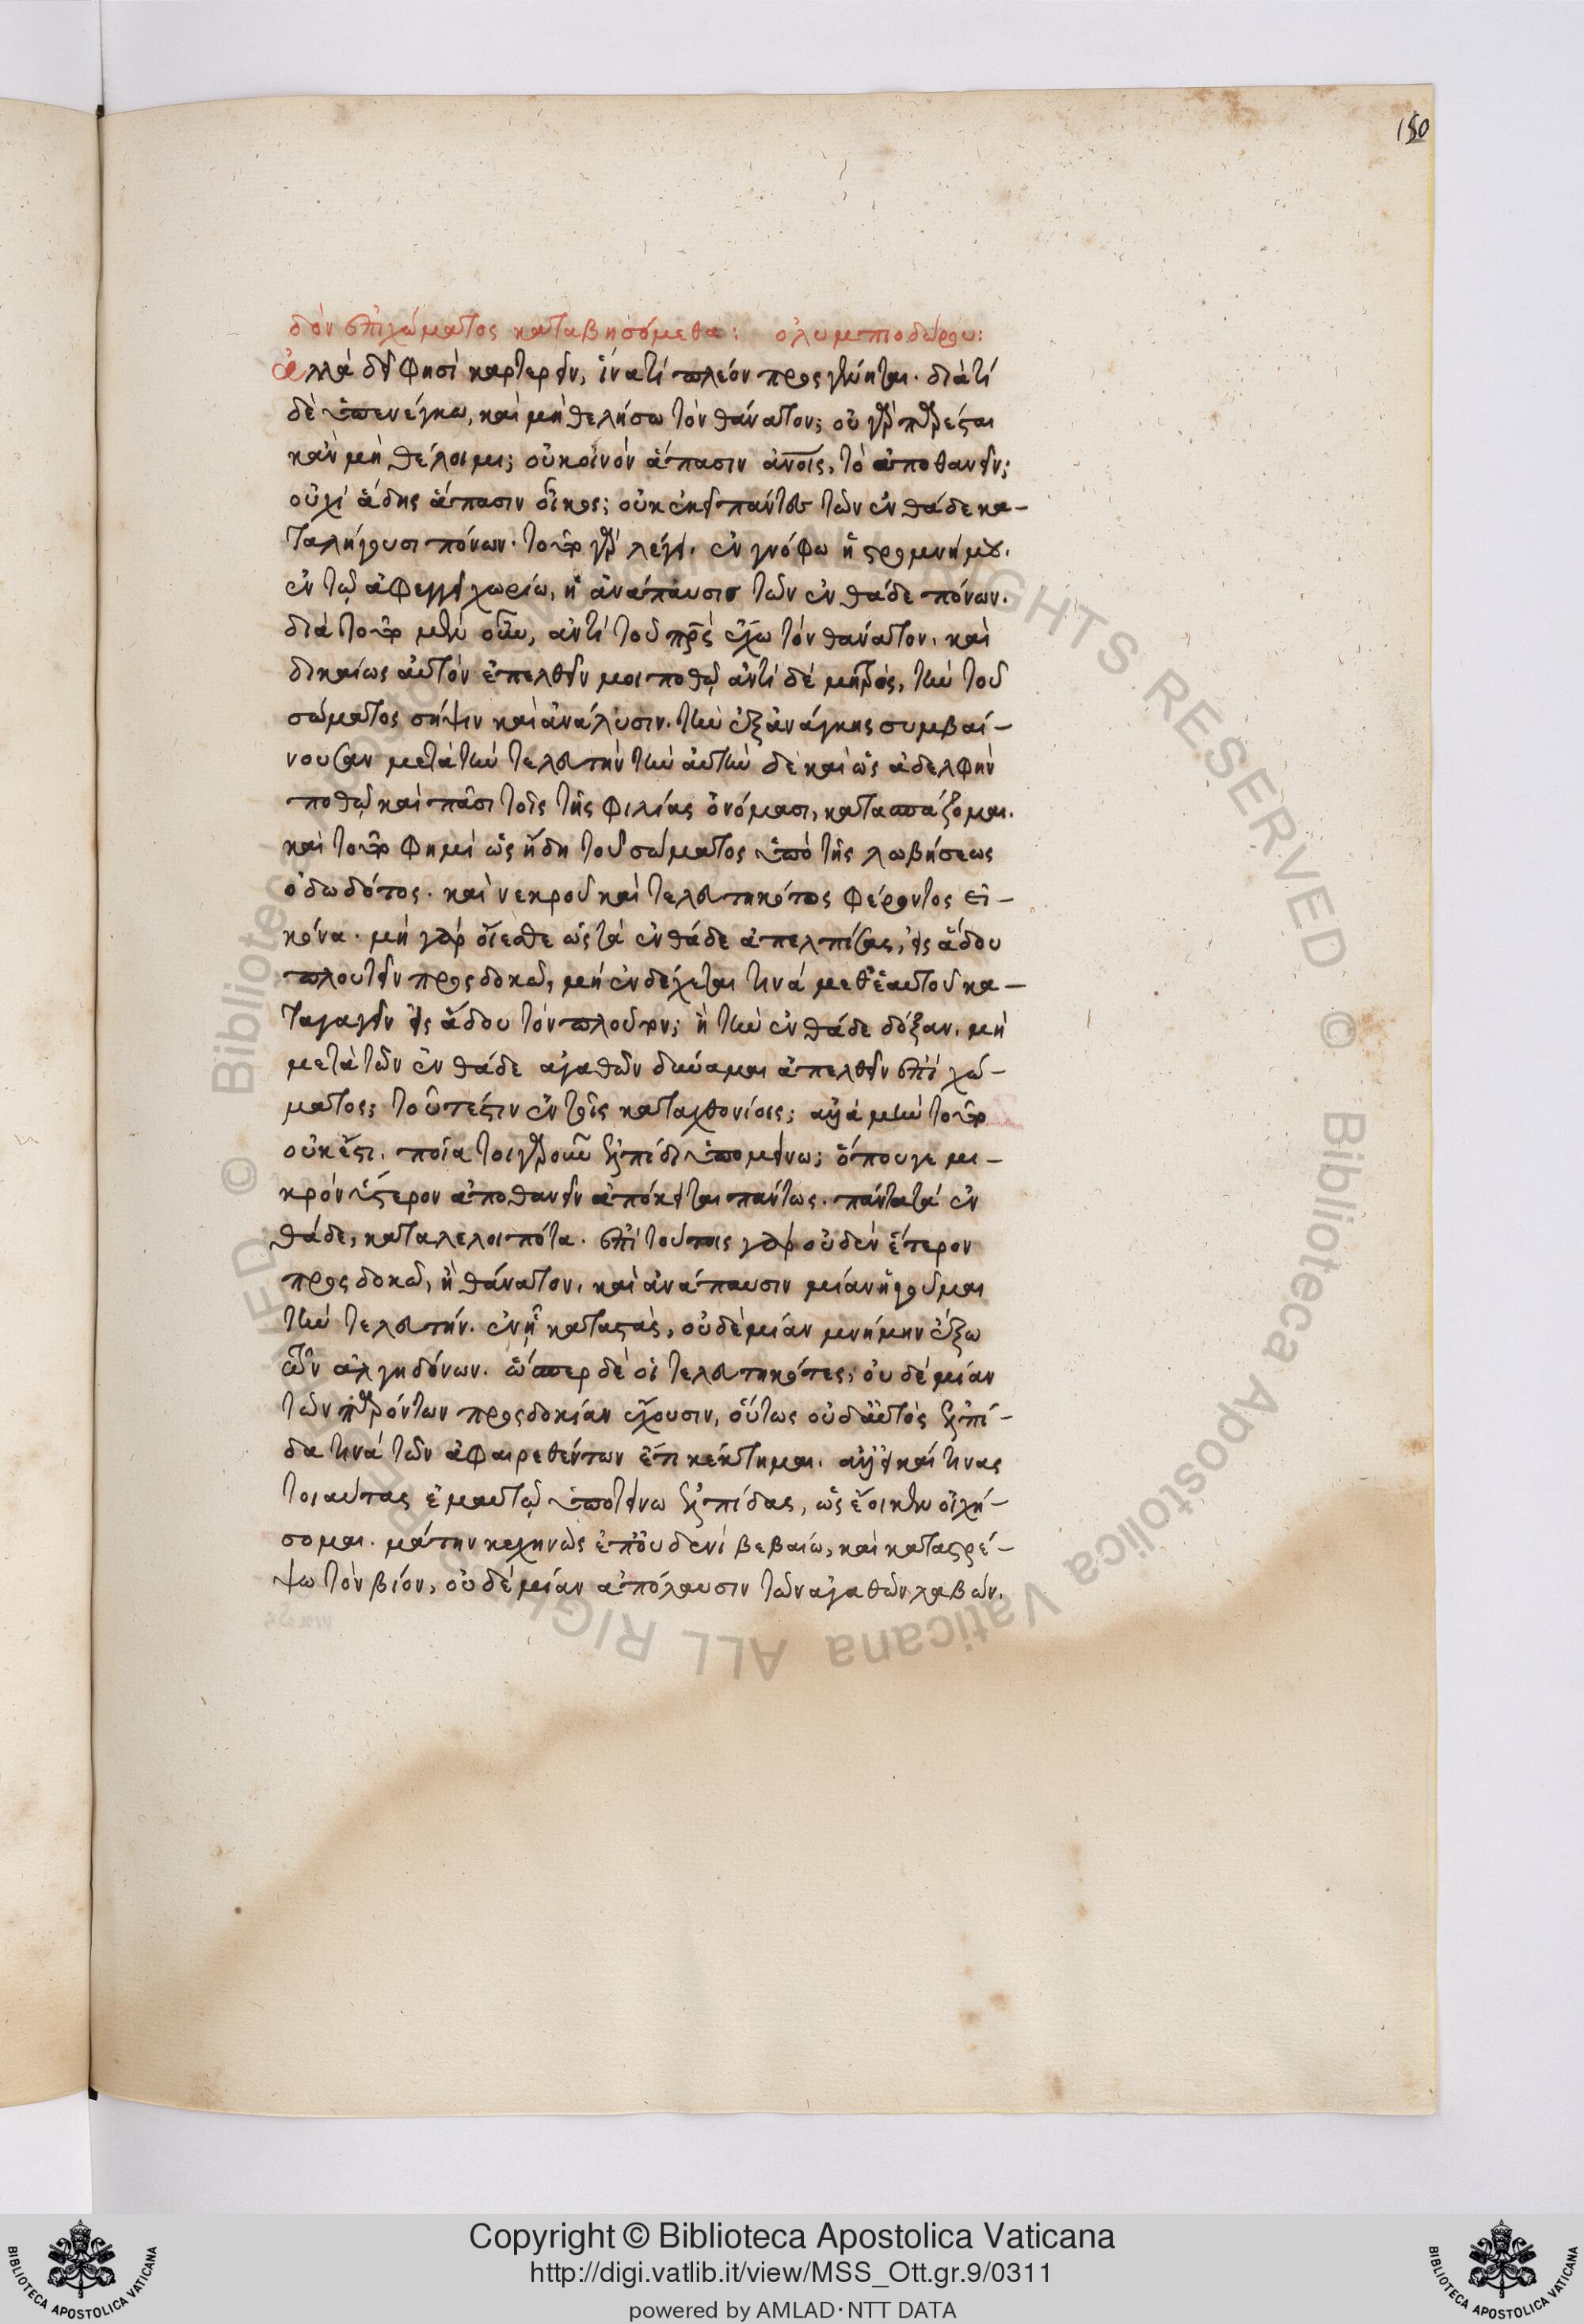 150
δὸν ἐπὶ χώματος καταβησόμεθα: ὀλυμπιοδώρου:
ἀλλὰ δεῖ φησὶ καρτερεῖν, ἵνα τί πλέον προσγένηται. διὰ τί
δὲ ὑπενέγκω, καὶ μὴ θελήσω τὸν θάνατον; οὐ γὰρ πάρεσται
κἂν μὴ θέλοιμι; οὐ κοινὸν ἅπασιν ἀνοις, τὸ ἀποθανεῖν;
οὐχὶ ἅδης ἅπασιν οἶκος; οὐκ ἐκεῖ πάντες τῶν ἐνθάδε κα-
ταλήγουσι πόνων. τοῦτο γὰρ λέγει. ἐν γνόφω ἡ στρομνή μου.
ἐν τῷ ἀφεγγεῖ χωρίω, ἡ ἀνάπαυσις τῶν ἐνθάδε πόνων.
διὰ τοῦτο μὲν οὖν, ἀντὶ τοῦ πρς ἔχω τὸν θάνατον. καὶ
δικαίως αὐτὸν ἐπελθεῖν μοι ποθῶ ἀντὶ δὲ μητρὸς, τὴν τοῦ
σώματος σῆψιν καὶ ἀνάλυσιν. τὴν ἐξ ἀνάγκης συμβαί-
νουσαν μετὰ τὴν τελευτὴν τὴν αὐτὴν δὲ καὶ ὡς ἀδελφὴν
ποθῶ καὶ πᾶσι τοῖς τῆς φιλίας ὀνόμασι, κατασπάζομαι.
καὶ τοῦτο φημὶ ὡς ἤδη τοῦ σώματος ὑπὸ τῆς λωβήσεως
ὀδωδότος. καὶ νεκροῦ καὶ τελευτηκότος φέροντος εἰ-
κόνα. μὴ γὰρ οἴεσθε ὡς τὰ ἐνθάδε ἀπελπίσας, εἰς ἅδου
πλουτεῖν προσδοκῶ, μὴ ἐνδέχεται τινὰ μεθ' ἑαυτοῦ κα-
ταγαγεῖν εἰς ἅδου τὸν πλοῦτον; ἢ τὴν ἐνθάδε δόξαν. μὴ
μετὰ τῶν ἐνθάδε ἀγαθῶν δύναμαι ἀπελθεῖν ἐπὶ χώ-
ματος; τοῦτ' ἔστιν ἐν τοῖς καταχθονίοις; ἀλλὰ μὴν τοῦτο
οὐκ ἔστι. ποία τοιγαροῦν ἐλπίδι ὑπομείνω; ὅπου γε μι-
κρὸν ὕστερον ἀποθανεῖν ἀπόκειται πάντως. πάντα τὰ ἐν
θάδε, καταλελοιπότα. ἐπὶ τούτοις γὰρ οὐδὲν ἕτερον
προσδοκῶ, ἢ θάνατον. καὶ ἀνάπαυσιν μίαν ἡγοῦμαι
τὴν τελευτήν. ἐν ᾗ καταστὰς, οὐδὲ μίαν μνήμην ἕξω
τῶν ἀλγηδόνων. ὥσπερ δὲ οἱ τελευτηκότες, οὐδὲ μίαν
τῶν παρόντων προσδοκίαν ἔχουσιν, οὕτως οὐδ' αὐτὸς ἐλπί-
δα τινὰ τῶν ἀφαιρεθέντων ἔτι κέκτημαι. ἀλλ' εἰ καί τινας
τοιαύτας ἐμαυτῷ ὑποτείνω ἐλπίδας, ὡς ἔοικεν οἰχή-
σομαι. μάτην κεχηνὼς ἐπ' οὐδενὶ βεβαίω, καὶ καταστρέ-
ψω τὸν βίον, οὐδὲ μίαν ἀπόλαυσιν τῶν ἀγαθῶν λαβών.
Copyright © Biblioteca Apostolica Vaticana
http://digi.vatlib.it/view/MSS_Ott.gr.9/0311
powered by AMLAD·NTT DATA